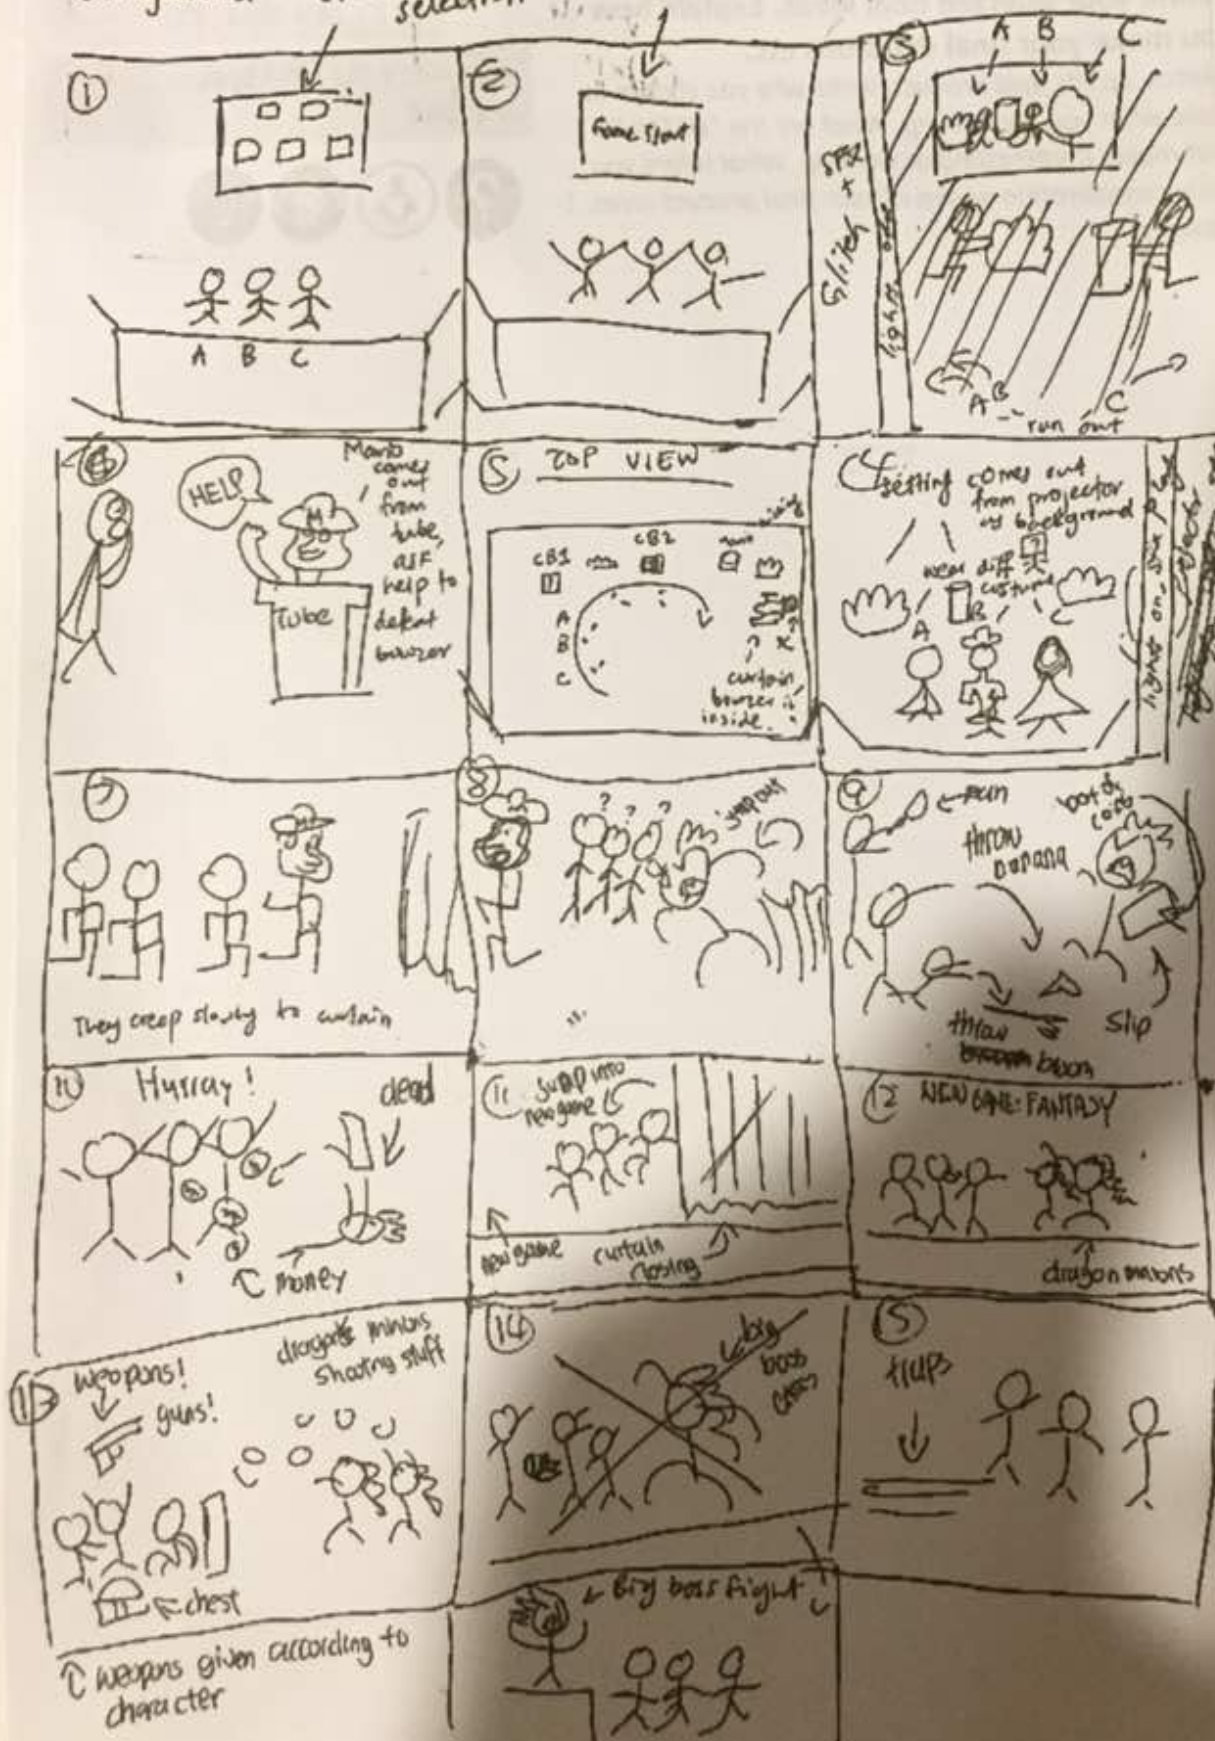 selection
①
A B C
②
Game Start
Glitch + SFX
lights off
3
A B C
A B C
run out
HELP
Mario
comes
out
from
tube,
ask
help to
defeat
bowzer
Tube
5
TOP VIEW
CB1
CB2
A
B
C
X
curtain
bowzer is
inside.
4
setting comes out
from projector
as background
wear diff
costume
A B C
lights on
7
They creep slowly to curtain
8
? ? ?
jump out
9
pan
throw
banana
throw
broom
slip
10
Hurray!
dead
money
11
jump into
new game
new game
curtain
closing
12
NEW GAME: FANTASY
dragon minions
13
weapons!
guns!
dragon minions
shooting stuff
chest
weapons given according to
character
14
big
boss
15
traps
Big boss fight